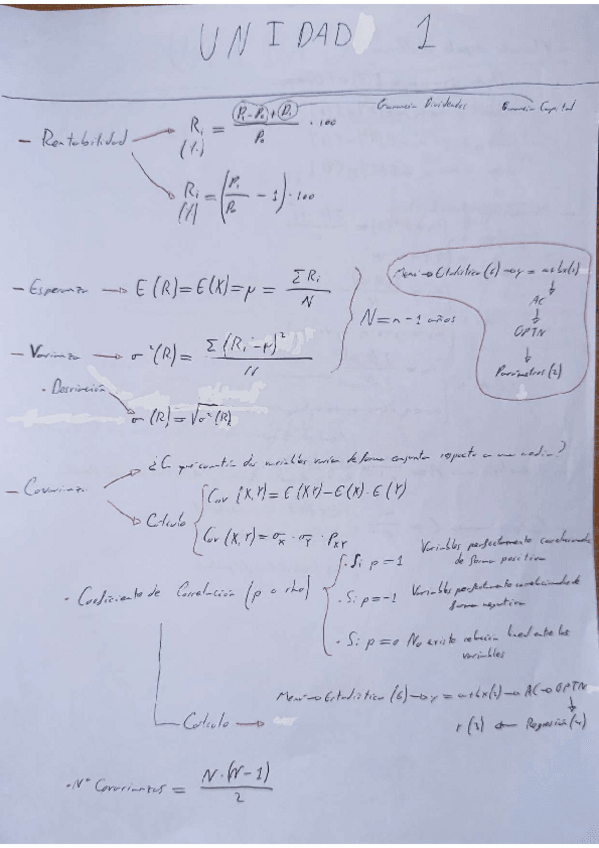 UNIDAD 1
Ganancia Dividendos Ganancia Capital
- Rentabilidad → Ri (%) = (P₁ - P₀) + D₁ / P₀ · 100
Ri (%) = (P₁ / P₀ - 1) · 100
- Esperanza → E(R) = E(X) = μ = ΣRi / N
N = n - 1 años
Menú → Estadística (6) → y = a+bx(2)
↓
AC
↓
OPTN
↓
Parámetros (2)
- Varianza → σ²(R) = Σ(Ri - μ)² / N
· Desviación
σ(R) = √σ²(R)
- Covarianza → ¿En qué cuantía dos variables varían de forma conjunta respecto a una media?
Cálculo
Cov (X,Y) = E(XY) - E(X) · E(Y)
Cov (X,Y) = σx · σy · ρxy
· Coeficiente de Correlación (ρ o rho)
· Si ρ = 1 Variables perfectamente correlacionadas de forma positiva
· Si ρ = -1 Variables perfectamente correlacionadas de forma negativa
· Si ρ = 0 No existe relación lineal entre las variables
Menú → Estadística (6) → y = a+bx(2) → AC → OPTN
↓
Cálculo →
r (3) ← Regresión (4)
· Nº Covarianzas = N · (N - 1) / 2